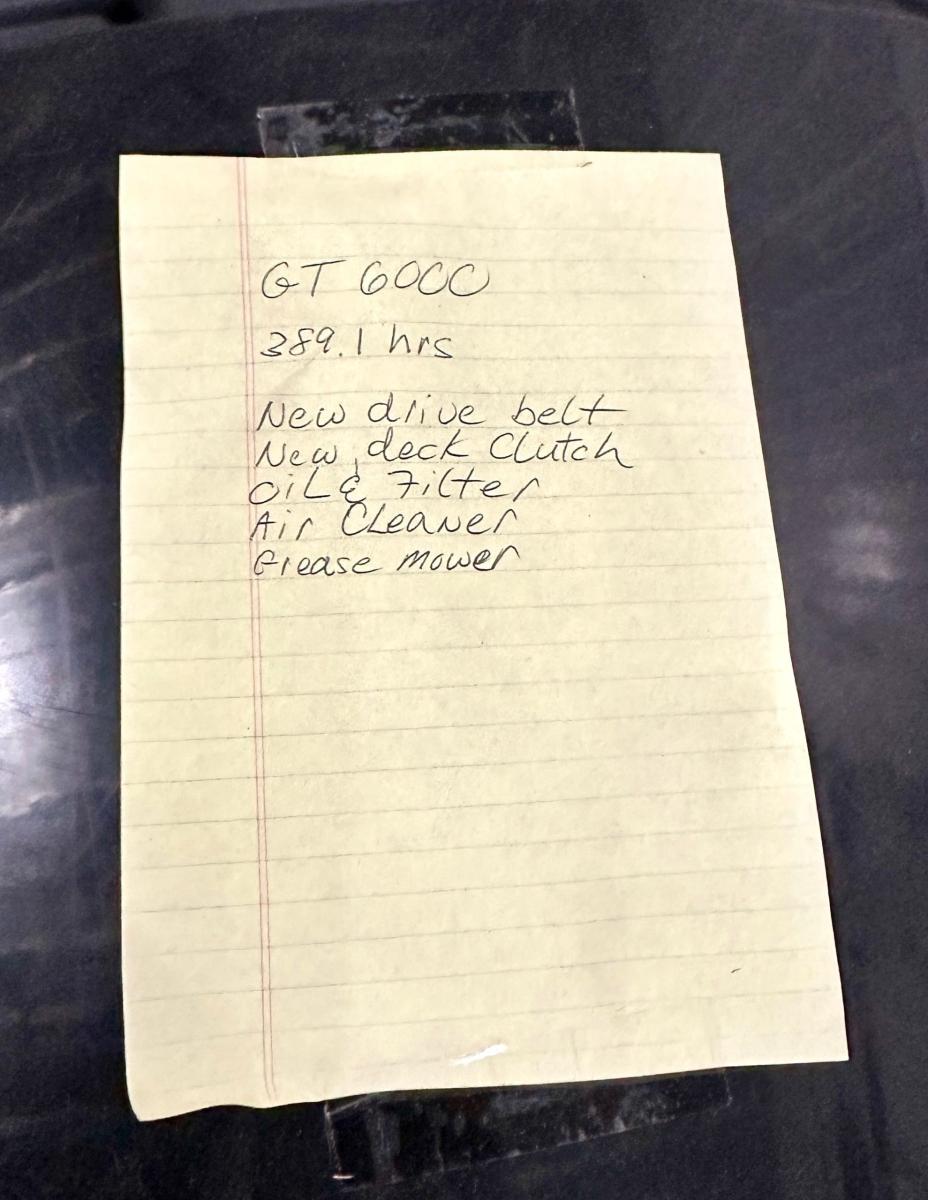 GT 6000
389.1 hrs
New drive belt
New deck Clutch
OiL & Filter
Air CLeaner
Grease mower